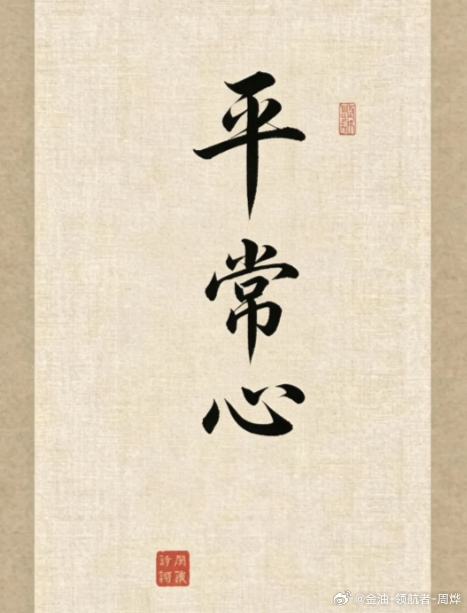 平常心
@金油-领航者-周烨